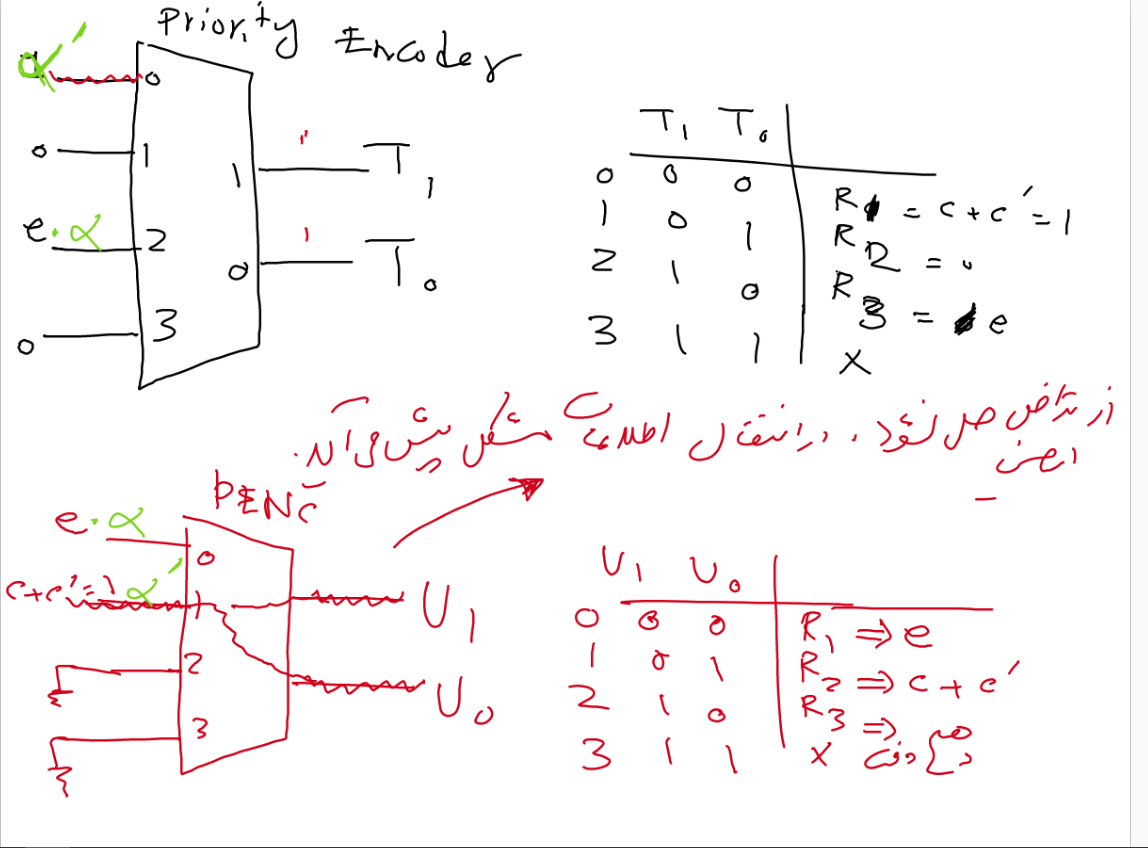 Priority Encoder
α' 0
0 1
e.α 2
0 3
1 T1
0 T0
T1 T0
0 0 0 R1 = c + c' = 1
1 0 1 R2 = 0
2 1 0 R3 = e
3 1 1 X
از تناقض حل نشود، در انتقال اطلاعات مشکل پیش می‌آید.
PENC
e.α 0
c+c'=1 α' 1
2
3
U1
U0
U1 U0
0 0 0 R1 ⇒ e
1 0 1 R2 ⇒ c + c'
2 1 0 R3 ⇒
3 1 1 X